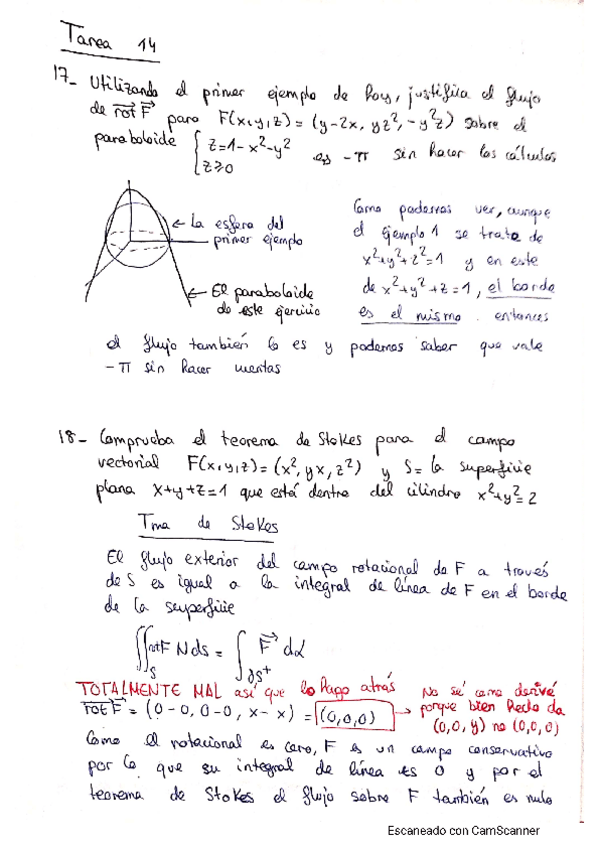 Tarea 14
17- Utilizando el primer ejemplo de hoy, justifica el flujo
de rot F para F(x,y,z) = (y-2x, yz², -y²z) sobre el
paraboloide { z=1-x²-y²
z≥0 es -π sin hacer los cálculos
← La esfera del
primer ejemplo
← El paraboloide
de este ejercicio
Como podemos ver, aunque
el Ejemplo 1 se trata de
x²+y²+z²=1 y en este
de x²+y²+z=1, el borde
es el mismo. entonces
el flujo también lo es y podemos saber que vale
-π sin hacer cuentas
18- Comprueba el teorema de Stokes para el campo
vectorial F(x,y,z) = (x², yx, z²) y S = la superficie
plana x+y+z=1 que está dentro del cilindro x²+y²=2
Tma de Stokes
El flujo exterior del campo rotacional de F a través
de S es igual a la integral de línea de F en el borde
de la superficie
∬_S rot F N ds = ∫_∂S⁺ F dα
TOTALMENTE MAL así que lo hago atrás
rot F = (0-0, 0-0, x-x) = (0,0,0)
No sé como derivé
porque bien hecho da
(0,0,y) no (0,0,0)
Como el rotacional es cero, F es un campo conservativo
por lo que su integral de línea es 0 y por el
teorema de Stokes el flujo sobre F también es nulo
Escaneado con CamScanner